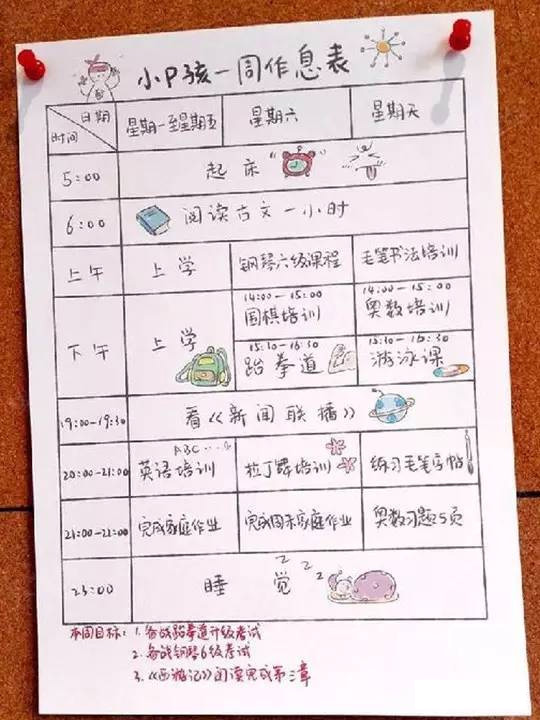 小P孩一周作息表
日期
时间
星期一至星期五 星期六 星期天
5:00 起床
6:00 阅读古文一小时
上午 上学 钢琴六级课程 毛笔书法培训
下午 上学
14:00-15:00 14:00-15:00
围棋培训 奥数培训
15:30-16:30 15:30-16:30
跆拳道 游泳课
19:00-19:30 看《新闻联播》
ABC....
20:00-21:00 英语培训 拉丁舞培训 练习毛笔字帖
21:00-22:00 完成家庭作业 完成周末家庭作业 奥数习题5页
23:00 睡觉 z z z
本周目标: 1.备战跆拳道升级考试
2.备战钢琴6级考试
3.《西游记》阅读完成第三章